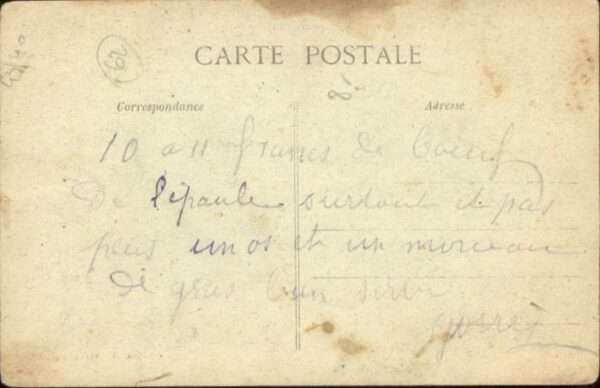 62
CARTE POSTALE
Correspondance
Adresse
10 a 11 francs de Boeuf
De l'épaule surtout et pas
peus un os et un morceau
de gras bien servi